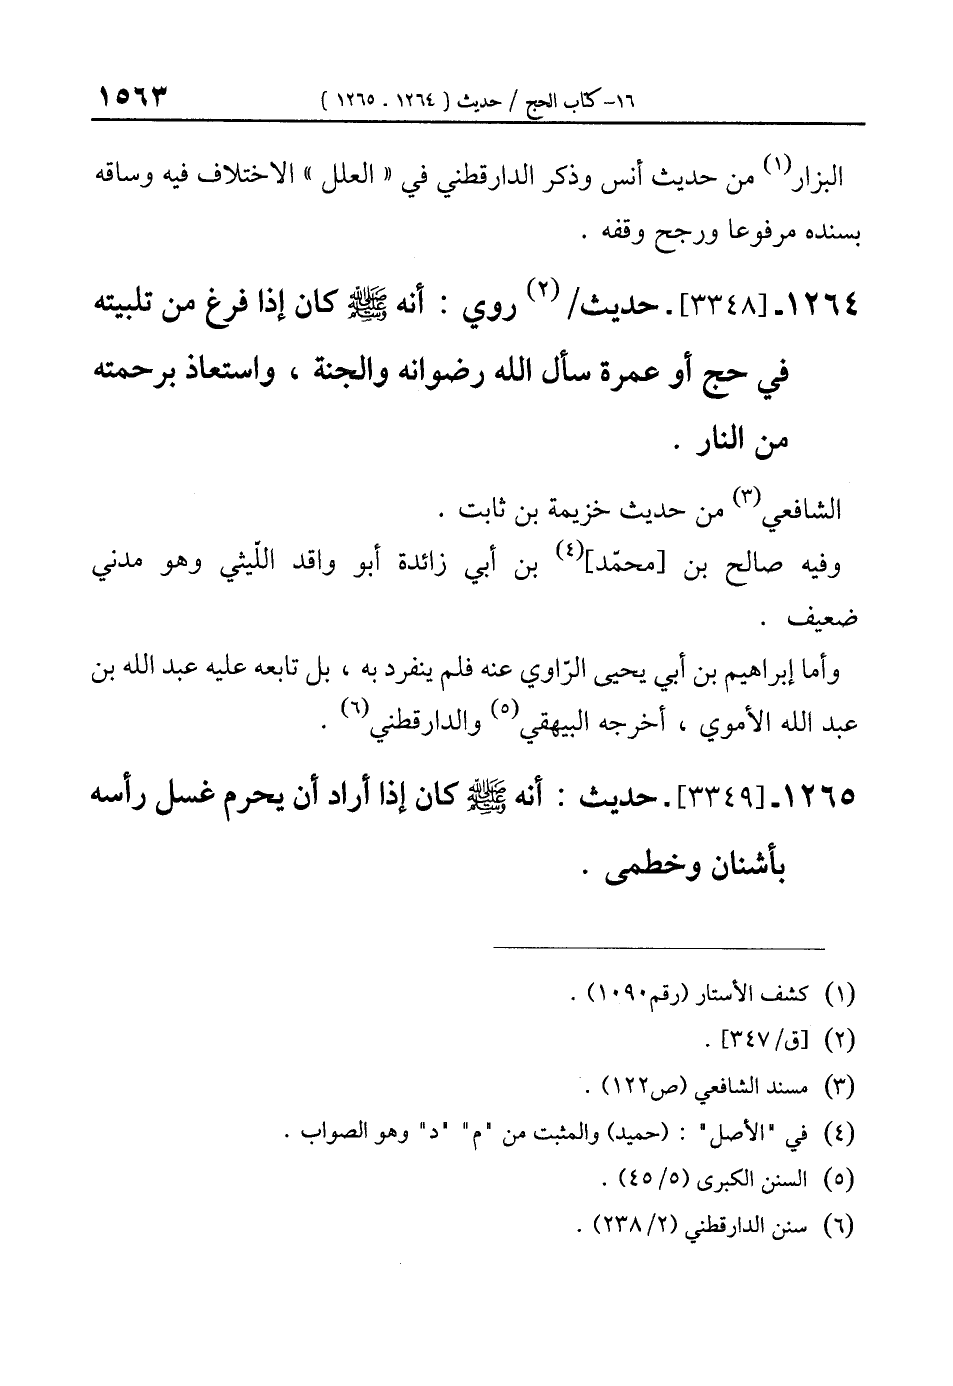 ١٦- كتاب الحج / حديث ( ١٢٦٤ . ١٢٦٥ ) ١٥٦٣
البزار(١) من حديث أنس وذكر الدارقطني في « العلل » الاختلاف فيه وساقه
بسنده مرفوعا ورجح وقفه .
١٢٦٤ـ [٣٣٤٨]. حديث/(٢) روي : أنه ﷺ كان إذا فرغ من تلبيته
في حج أو عمرة سأل الله رضوانه والجنة ، واستعاذ برحمته
من النار .
الشافعي(٣) من حديث خزيمة بن ثابت .
وفيه صالح بن [محمّد](٤) بن أبي زائدة أبو واقد اللّيثي وهو مدني
ضعيف .
وأما إبراهيم بن أبي يحيى الرّاوي عنه فلم ينفرد به ، بل تابعه عليه عبد الله بن
عبد الله الأموي ، أخرجه البيهقي(٥) والدارقطني(٦) .
١٢٦٥ـ [٣٣٤٩]. حديث : أنه ﷺ كان إذا أراد أن يحرم غسل رأسه
بأشنان وخطمى .
(١) كشف الأستار (رقم١٠٩٠) .
(٢) [ق/٣٤٧] .
(٣) مسند الشافعي (ص١٢٢) .
(٤) في "الأصل" : (حميد) والمثبت من "م" "د" وهو الصواب .
(٥) السنن الكبرى (٤٥/٥) .
(٦) سنن الدارقطني (٢٣٨/٢) .